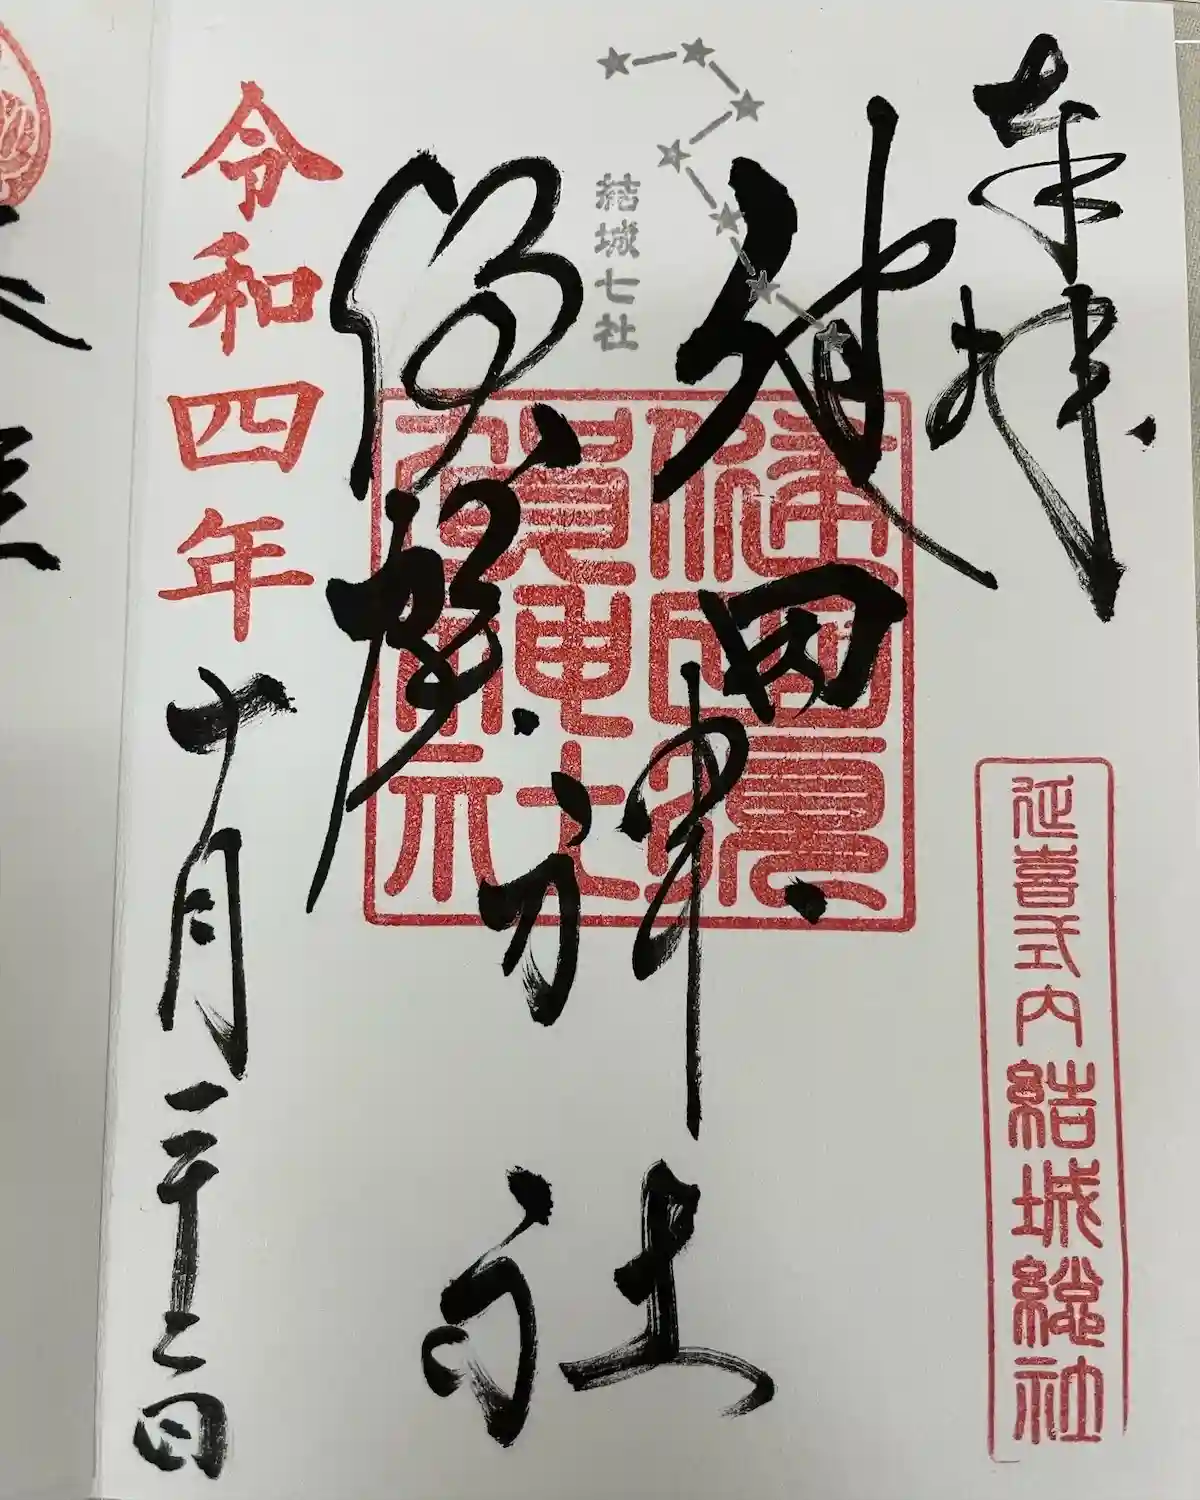 奉拝
延喜式内 結城総社
健田須賀神社
健田須賀神社
結城七社
令和四年
十月二十二日